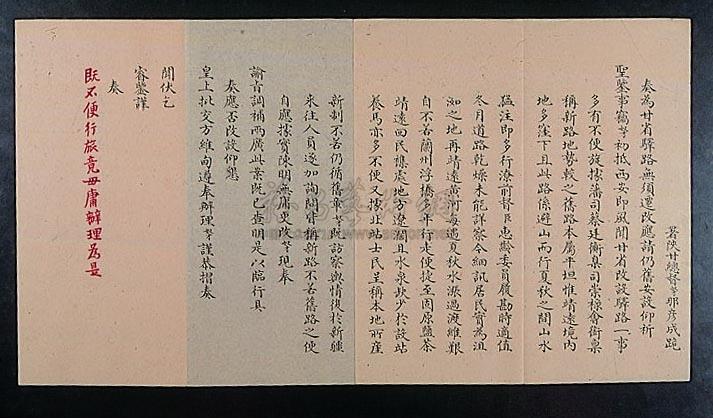 署陝甘總督奴才那彥成跪
奏為甘省驛路無須遷改應請仍舊安設仰祈
聖鑒事竊奴才初抵西安即風聞甘省改設驛路一事
多有不便旋據藩司蔡廷衡臬司崇祿會銜稟
稱新路地勢較之舊路本屬平坦惟靖遠境內
地多窪下且此路係避山而行夏秋之間山水
猛注即多行潦前督臣惠齡委員履勘時適值
冬月道路乾燥未能詳察今細訊居民實為沮
洳之地再靖遠黃河每遇夏秋水漲過渡維艱
自不若蘭州浮橋多年行走便捷至固原鹽茶
靖遠回民積處地方遼闊且水泉缺少於設站
養馬亦多不便又據北站士民呈稱本地所產
新制不若仍循舊奴才既訪察輿情復於新疆
來往人員逐加詢問皆稱新路不若舊路之便
自應據實陳明無庸更改奴才現奉
諭旨調補兩廣此案既已查明是以臨行具
奏應否改設仰懇
皇上批交方維甸遵奉辦理奴才謹恭摺奏
聞伏乞
睿鑒謹
奏
既不便行旅竟毋庸辦理為是